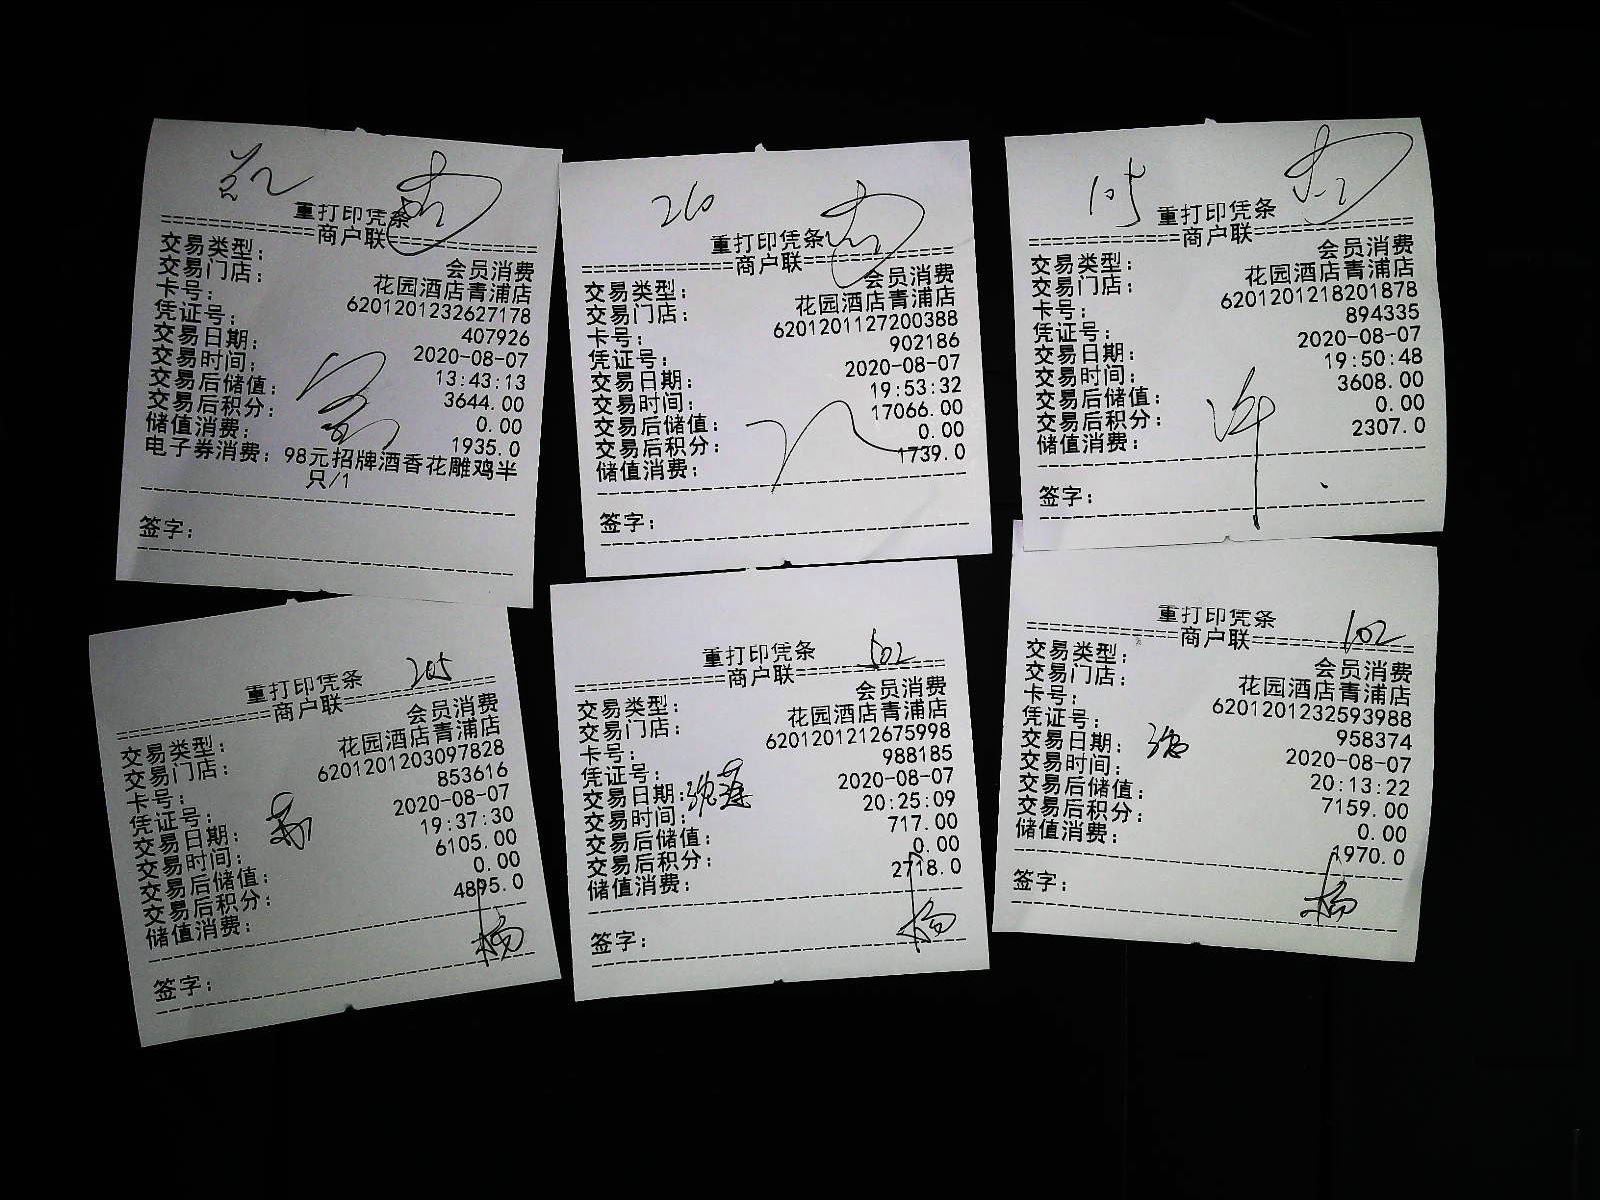 重打印凭条
商户联
交易类型： 会员消费
交易门店： 花园酒店青浦店
卡号： 6201201232627178
凭证号： 407926
交易日期： 2020-08-07
交易时间： 13:43:13
交易后储值： 3644.00
交易后积分： 0.00
储值消费： 1935.0
电子券消费：98元招牌酒香花雕鸡半
只/1
签字：
210
重打印凭条
商户联
交易类型： 会员消费
交易门店： 花园酒店青浦店
卡号： 6201201127200388
凭证号： 902186
交易日期： 2020-08-07
交易时间： 19:53:32
交易后储值： 17066.00
交易后积分： 0.00
储值消费： 1739.0
签字：
105
重打印凭条
商户联
交易类型： 会员消费
交易门店： 花园酒店青浦店
卡号： 6201201218201878
凭证号： 894335
交易日期： 2020-08-07
交易时间： 19:50:48
交易后储值： 3608.00
交易后积分： 0.00
储值消费： 2307.0
许
签字：
205
重打印凭条
商户联
交易类型： 会员消费
交易门店： 花园酒店青浦店
卡号： 6201201203097828
凭证号： 853616
交易日期： 2020-08-07
交易时间： 19:37:30
交易后储值： 6105.00
交易后积分： 0.00
储值消费： 4895.0
杨
签字：
重打印凭条
商户联
交易类型： 会员消费
交易门店： 花园酒店青浦店
卡号： 6201201212675998
凭证号： 988185
交易日期： 2020-08-07
交易时间： 20:25:09
交易后储值： 717.00
交易后积分： 0.00
储值消费： 2718.0
签字： 杨
102
重打印凭条
商户联
交易类型： 会员消费
交易门店： 花园酒店青浦店
卡号： 6201201232593988
凭证号： 958374
交易日期： 2020-08-07
交易时间： 20:13:22
交易后储值： 7159.00
交易后积分： 0.00
储值消费： 1970.0
签字： 杨